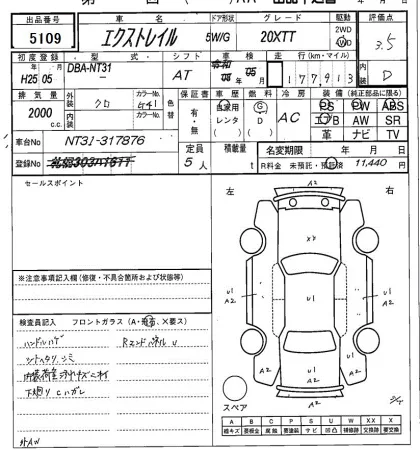 出品番号 車名 ドア形状 グレード 駆動 評価点
5109 エクストレイル 5W/G 20XTT 2WD 4WD 3.5
初度登録 型式 シフト 車検 走行(km・マイル) 内装
H25年05月 DBA-NT31 AT 05 177,913 D
排気量 外装 クロ カラーNo. G41 色替 保証書 車歴 燃料 冷房 装備(純正部品に限る)
2000c.c. 内装 カラーNo. 有・無 自家用 レンタ G D AC PS PW ABS
エアB AW SR
革 ナビ TV
車台No NT31-317876 定員 積載量 名変期限 年 月 日
登録No 5人 t R料金 未預託・預託済 11,440円
セールスポイント
左 右
A2
XX
U1 A2
U1
U1 A2
U1
A2
A2
U1 A2
A2
スペア
※注意事項記入欄(修復・不具合箇所および状態等)
検査員記入 フロントガラス(A・飛石・X要ス)
ハンドルハゲ RエンドパネルU
シートスレ、シミ
下廻りCハガレ
外AW
A B C P S U W XX X
線キズ 要板金 腐蝕 要塗装 サビ 凹凸 補修跡 交換跡 要交換